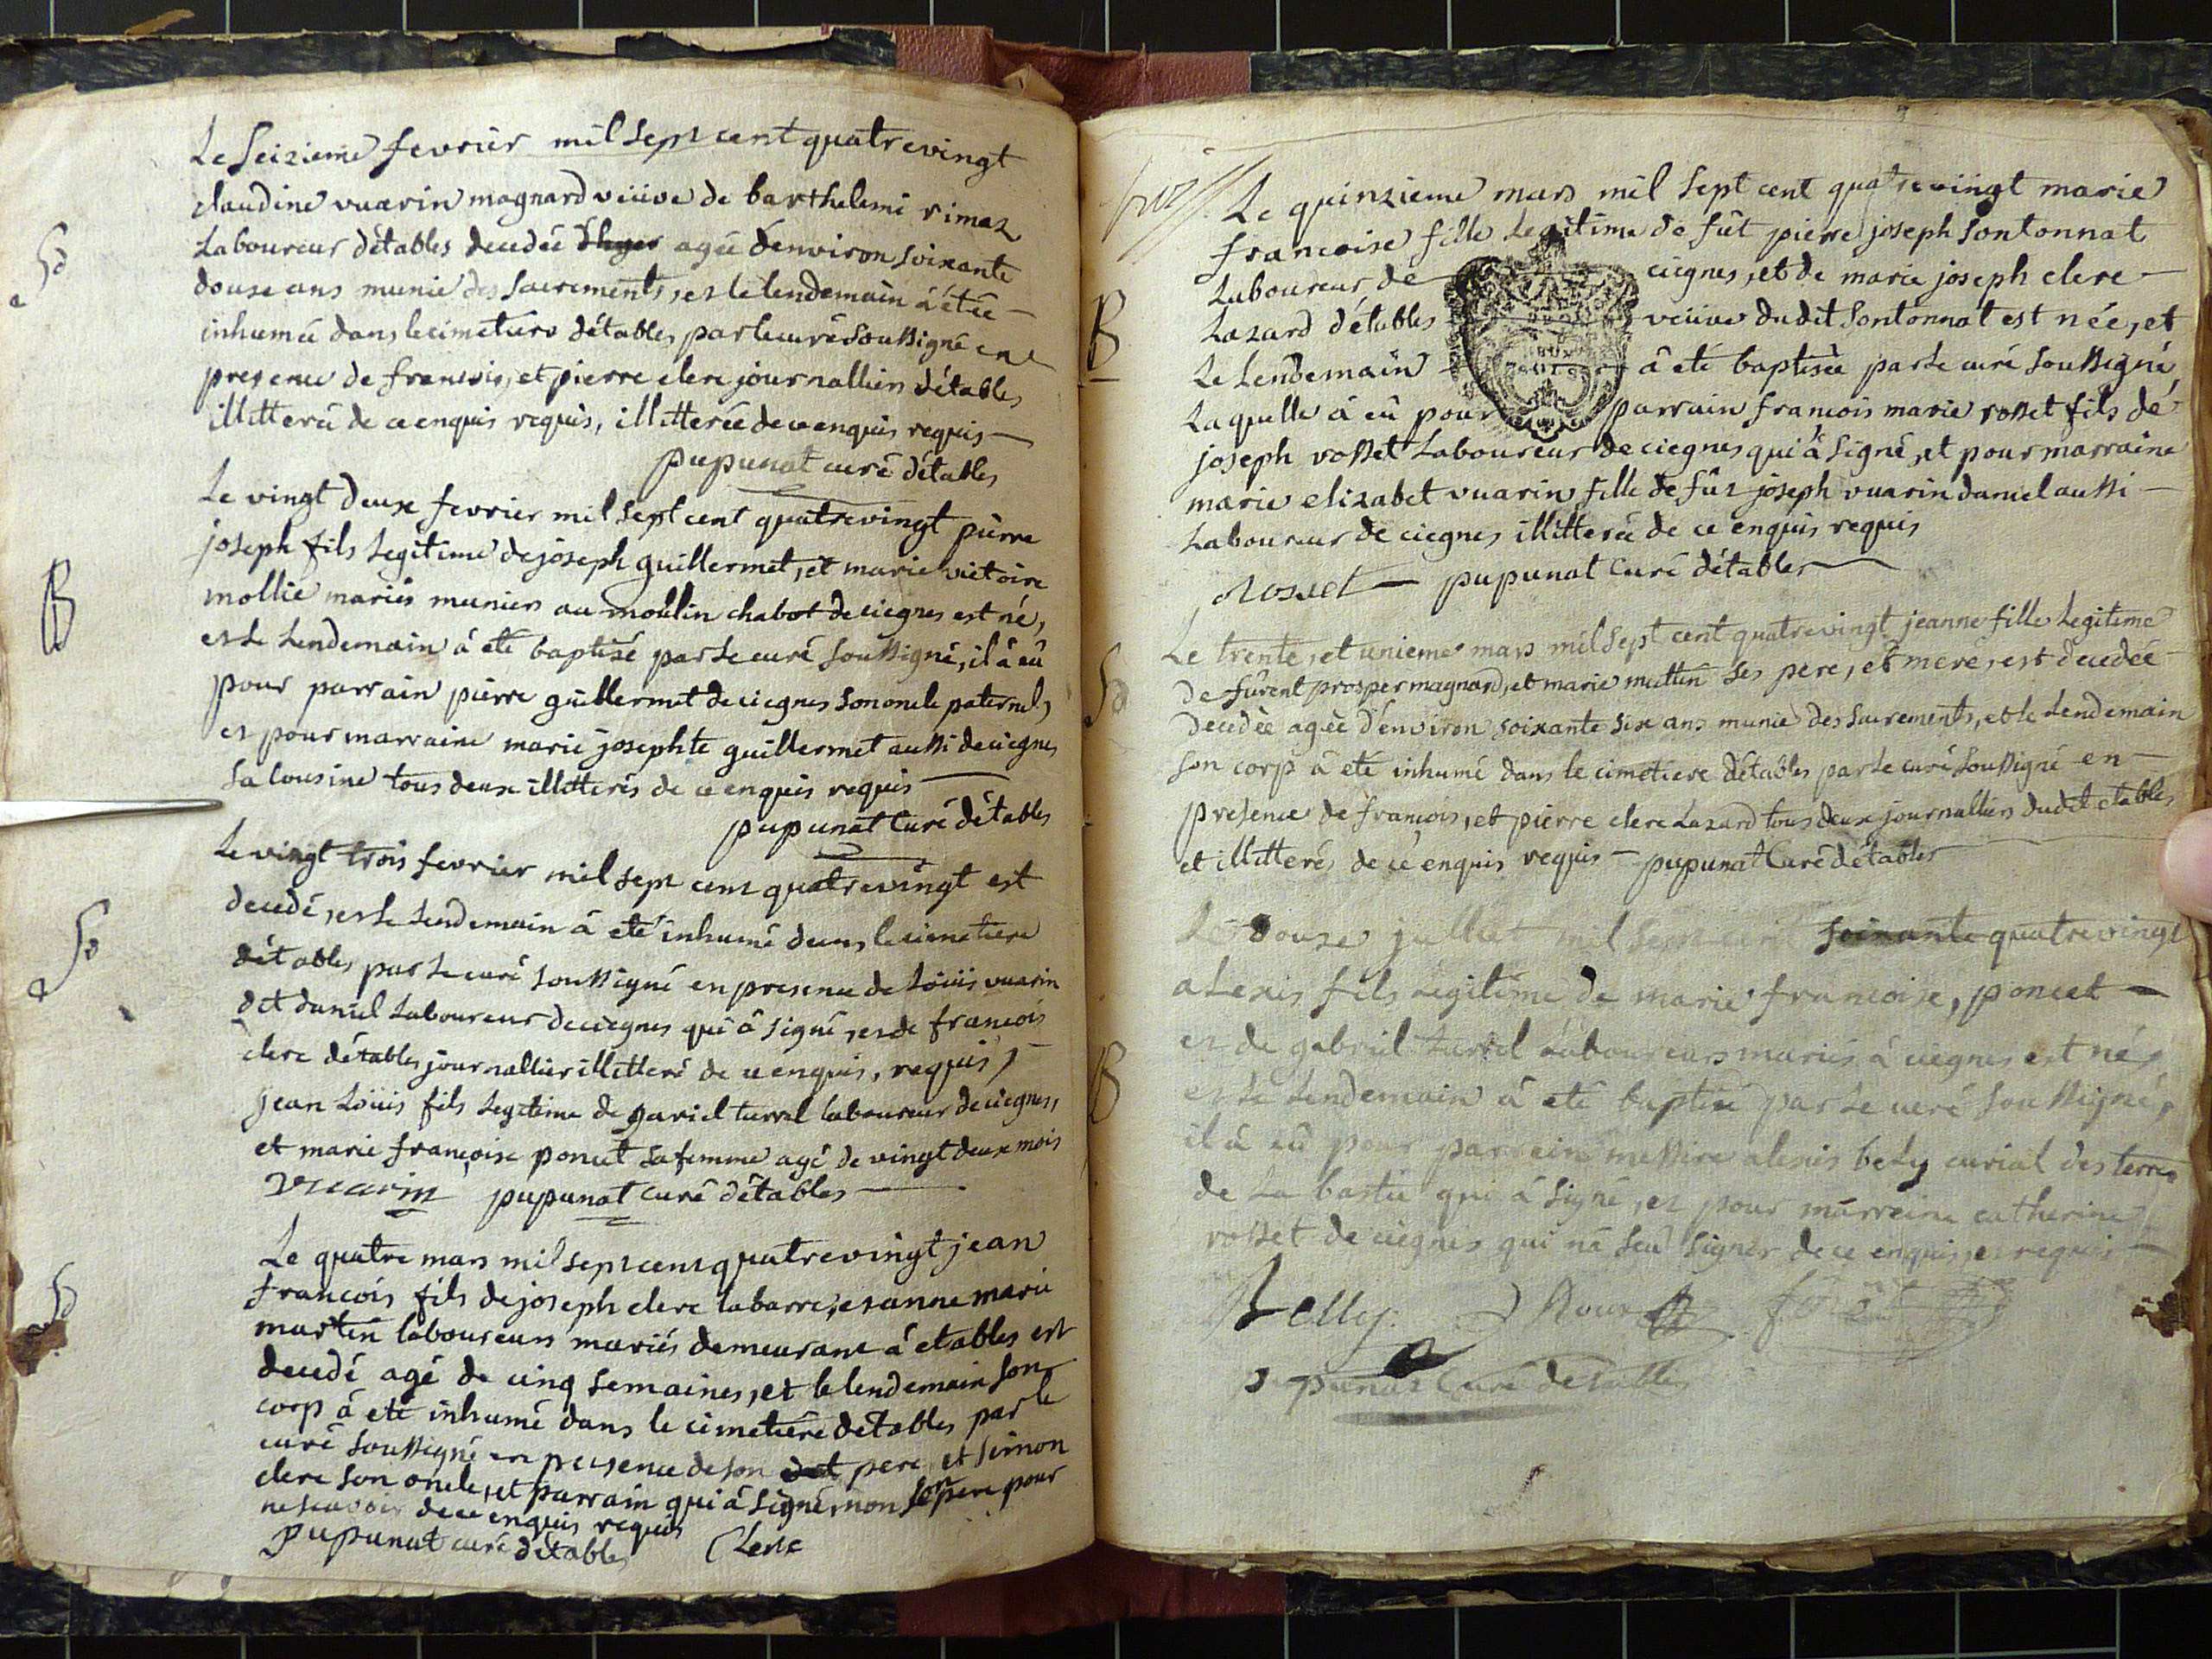 Le Seizieme fevrier mil sept cent quatrevingt
claudine vuarin magnard veüve de barthelemi rimaz
Laboureur d'étables decedée agée denviron soixante
douze ans munie des Sacrements, et le lendemain à étée
inhumée dans le cimetiere détables, par le curé soussigné en
presence de francois, et pierre clerc journalliers détables
illitteré de ce enquis requis, illitterée de ce enquis requis
pupunat curé détables
Sd
Le vingt deux fevrier mil sept cent quatrevingt pierre
joseph fils legitime de joseph guillermet, et marie victoire
mollie mariés muniers au moulin chabot de ciegnes est né,
et le Lendemain á eté baptisé par le curé soussigné, il â eû
pour parrain pierre guillermet de ciegnes son oncle paternel,
et pour marraine marie josephte guillermet aussi de ciegnes
sa cousine tous deux illitterés de ce enquis requis
pupunat Curé détables
B
Le vingt trois fevrier mil sept cent quatrevingt est
decedé, et le Lendemain á eté inhumé dans le cimetiere
détables par le curé soussigné en presence de Loüis vuarin
dit daniel Laboureur de ciegnes qui â signé, et de francois
clerc détables journallier illitteré de ce enquis, requis,
jean Loüis fils legitime de gariel turrel laboureur de ciegnes,
et marie françoise poncet sa femme agé de vingt deux mois
vuarin pupunat curé détables
Sd
Le quatre mars mil sept cent quatrevingt jean
francois fils de joseph clerc labarre, et anne marie
martin laboureurs mariés demeurant á etables est
decedé agé de cinq semaines, et le lendemain son
corp á eté inhumé dans le cimetiere détables par le
curé soussigné en presence de son pere et simon
clerc son oncle, et parrain qui á signé non pere pour
ne scavoir de ce enquis requis
pupunat curé détables Clerc
Sd
Le quinzieme mars mil sept cent quatrevingt marie
francoise fille Legitime de fût pierre joseph sontonnat
Laboureur de ciegnes, et de marie joseph clerc
Lazard détables veüve dudit sontonnat est née, et
Le Lendemain â eté baptisée par le curé soussigné
Laquelle á eû pour parrain francois marie rosset fils de
joseph rosset Laboureur de ciegnes qui â signé, et pour marraine
marie elizabet vuarin fille de fût joseph vuarin daniel aussi
Laboureur de ciegnes illitteré de ce enquis requis
rosset pupunat Curé détables
B
Le trente, et unieme mars mil sept cent quatrevingt jeanne fille Legitime
de fûrent prosper magnard, et marie muttin ses pere, et mere, est decedée
decedée agée d'environ soixante six ans munie des Sacrements, et le Lendemain
son corp â eté inhumé dans le cimetiere détables par le curé soussigné en
presence de francois, et pierre clerc Lazard tous deux journalliers dudit etables
et illitteré, de ce enquis requis pupunat Curé détables
Sd
Le douze juillet mil sept cent soixante quatrevingt
alexis fils Legitime de marie francoise, poncet
et de gabriel turrel Laboureurs mariés á ciegnes est né,
et le Lendemain â eté baptisé par le curé soussigné,
il á eû pour parrein messire alexis bely curial des terres
de La bastie qui á signé, et pour marreine catherine
rosset de ciegnes qui nâ seu signer de ce enquis, et requis
Belly. Roux
pupunat Curé détables
B